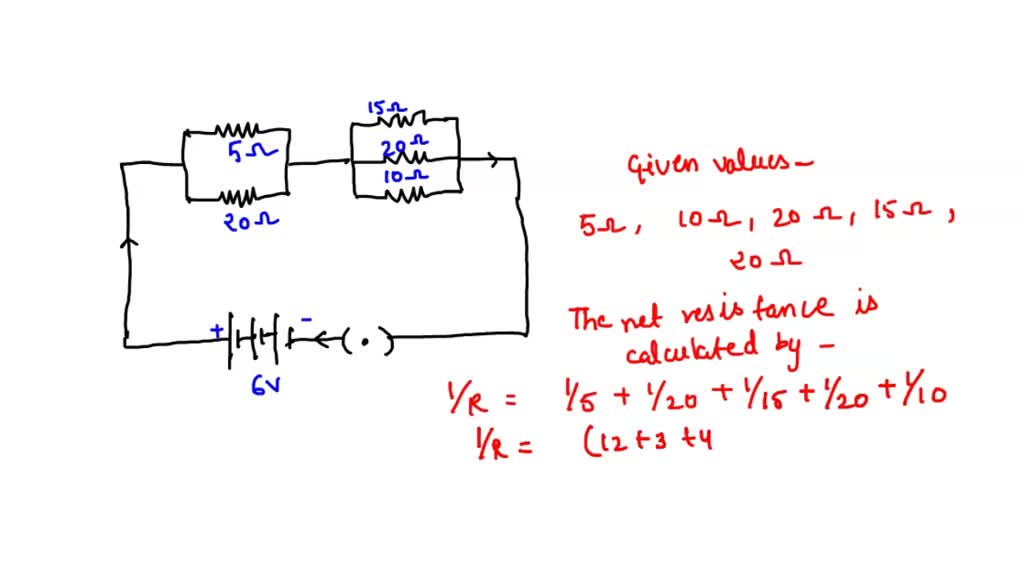 15Ω
5Ω
20Ω
10Ω
20Ω
+ -
6V
Given values-
5Ω, 10Ω, 20Ω, 15Ω,
20Ω
The net resistance is
calculated by -
1/R = 1/5 + 1/20 + 1/15 + 1/20 + 1/10
1/R = (12+3+4